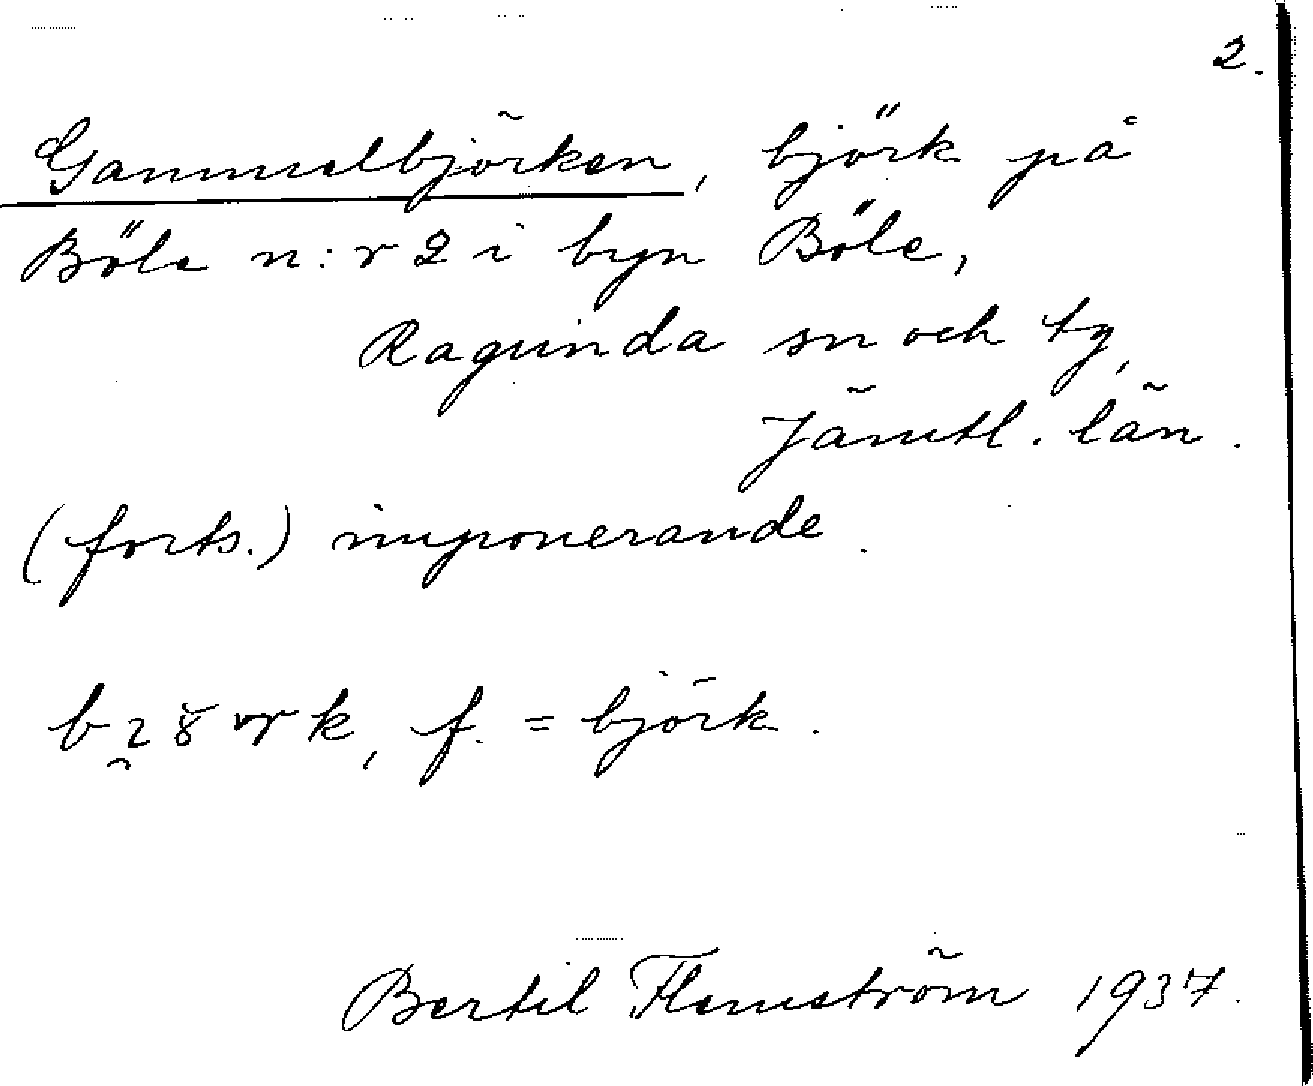 2.
Gammelbjörken, björk på
Böle n:r 2 i byn Böle,
Ragunda sn och tg,
Jämtl. län.
(forts.) imponerande.
k, f. = björk.
Bertil Flemström 1937.